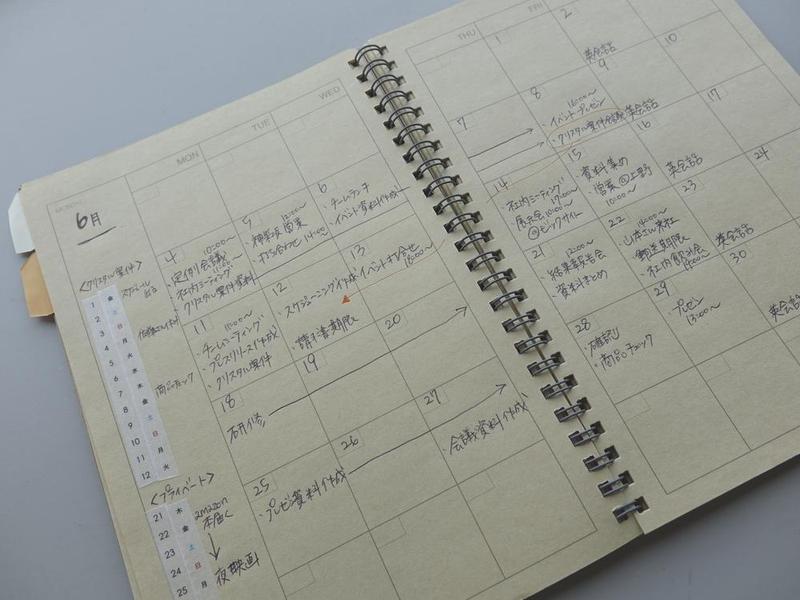 MONTH
6月
MON
TUE
WED
THU
FRI
1
2
英会話
4
10:00〜
定例会議
社内ミーティング
クリスタル案件資料
5
12:00〜
神楽坂営業
打ち合わせ 14:00〜
6
チームランチ
イベント資料作成
7
8
16:00〜
イベントプレゼン
クリスタル案件会議
9
英会話
10
11
11:00〜
チームミーティング
プレスリリース作成
クリスタル案件
12
スケジューニング作成
請求書期限
13
イベント打合せ
18:00〜
14
社内ミーティング
17:00〜
展示会10:00〜
@ビックサイト
15
資料集め
営業@上野
10:00〜
16
英会話
17
18
研修
19
20
21
12:00〜
結果報告会
資料まとめ
22
14:00〜
山本さん来社
郵送期限
社内飲み会
19:00〜
23
英会話
24
25
プレゼン資料作成
26
27
会議資料作成
28
確認
商品チェック
29
プレゼン
13:00〜
30
英会話
<クリスタル案件>
1 金
2 土
3 日
4 月
5 火
6 水
7 木
8 金
9 土
10 日
11 月
12 火
スケジュール
商品チェック
<プライベート>
21 木
22 金
23 土
24 日
25 月
amazon
本届く
夜映画